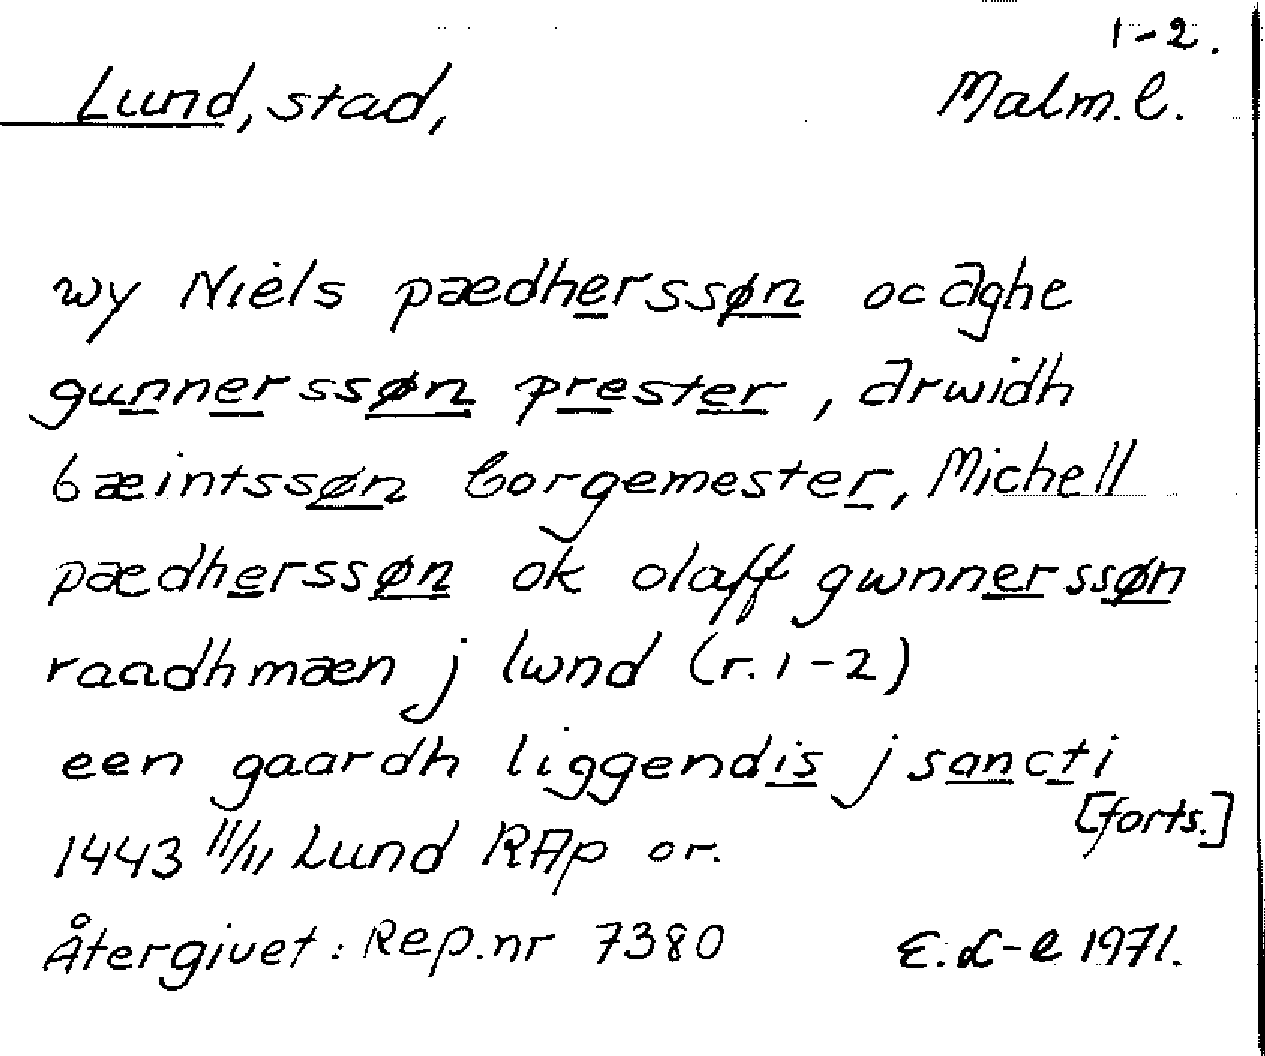 1-2.
Lund, stad, Malm. l.
wy Niels pædherssøn oc aghe
gunnerssøn prester, arwidh
bæintssøn borgemester, Michell
pædherssøn ok olaff gwnnerssøn
raadhmæn j lwnd (r. 1-2)
een gaardh liggendis j sancti
[forts.]
1443 11/11 Lund RAp or.
Återgivet: Rep. nr 7380 E. L-e 1971.